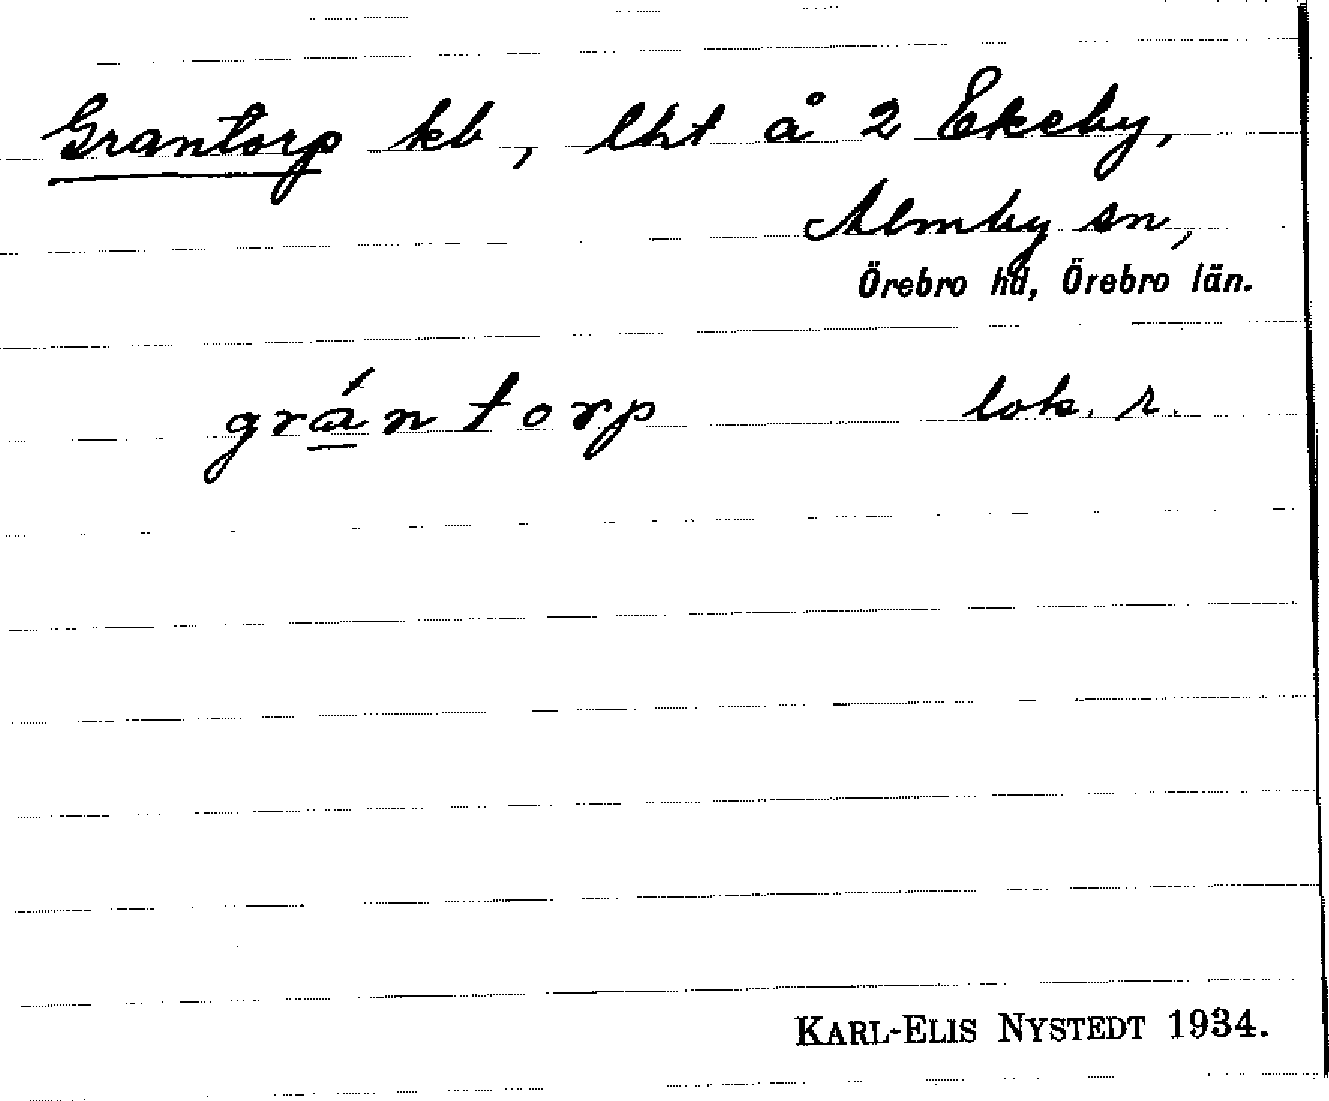 Grantorp kb, lht å 2 Ekeby,
Almby sn,
Örebro hd, Örebro län.
grántorp lok. r.
KARL-ELIS NYSTEDT 1934.